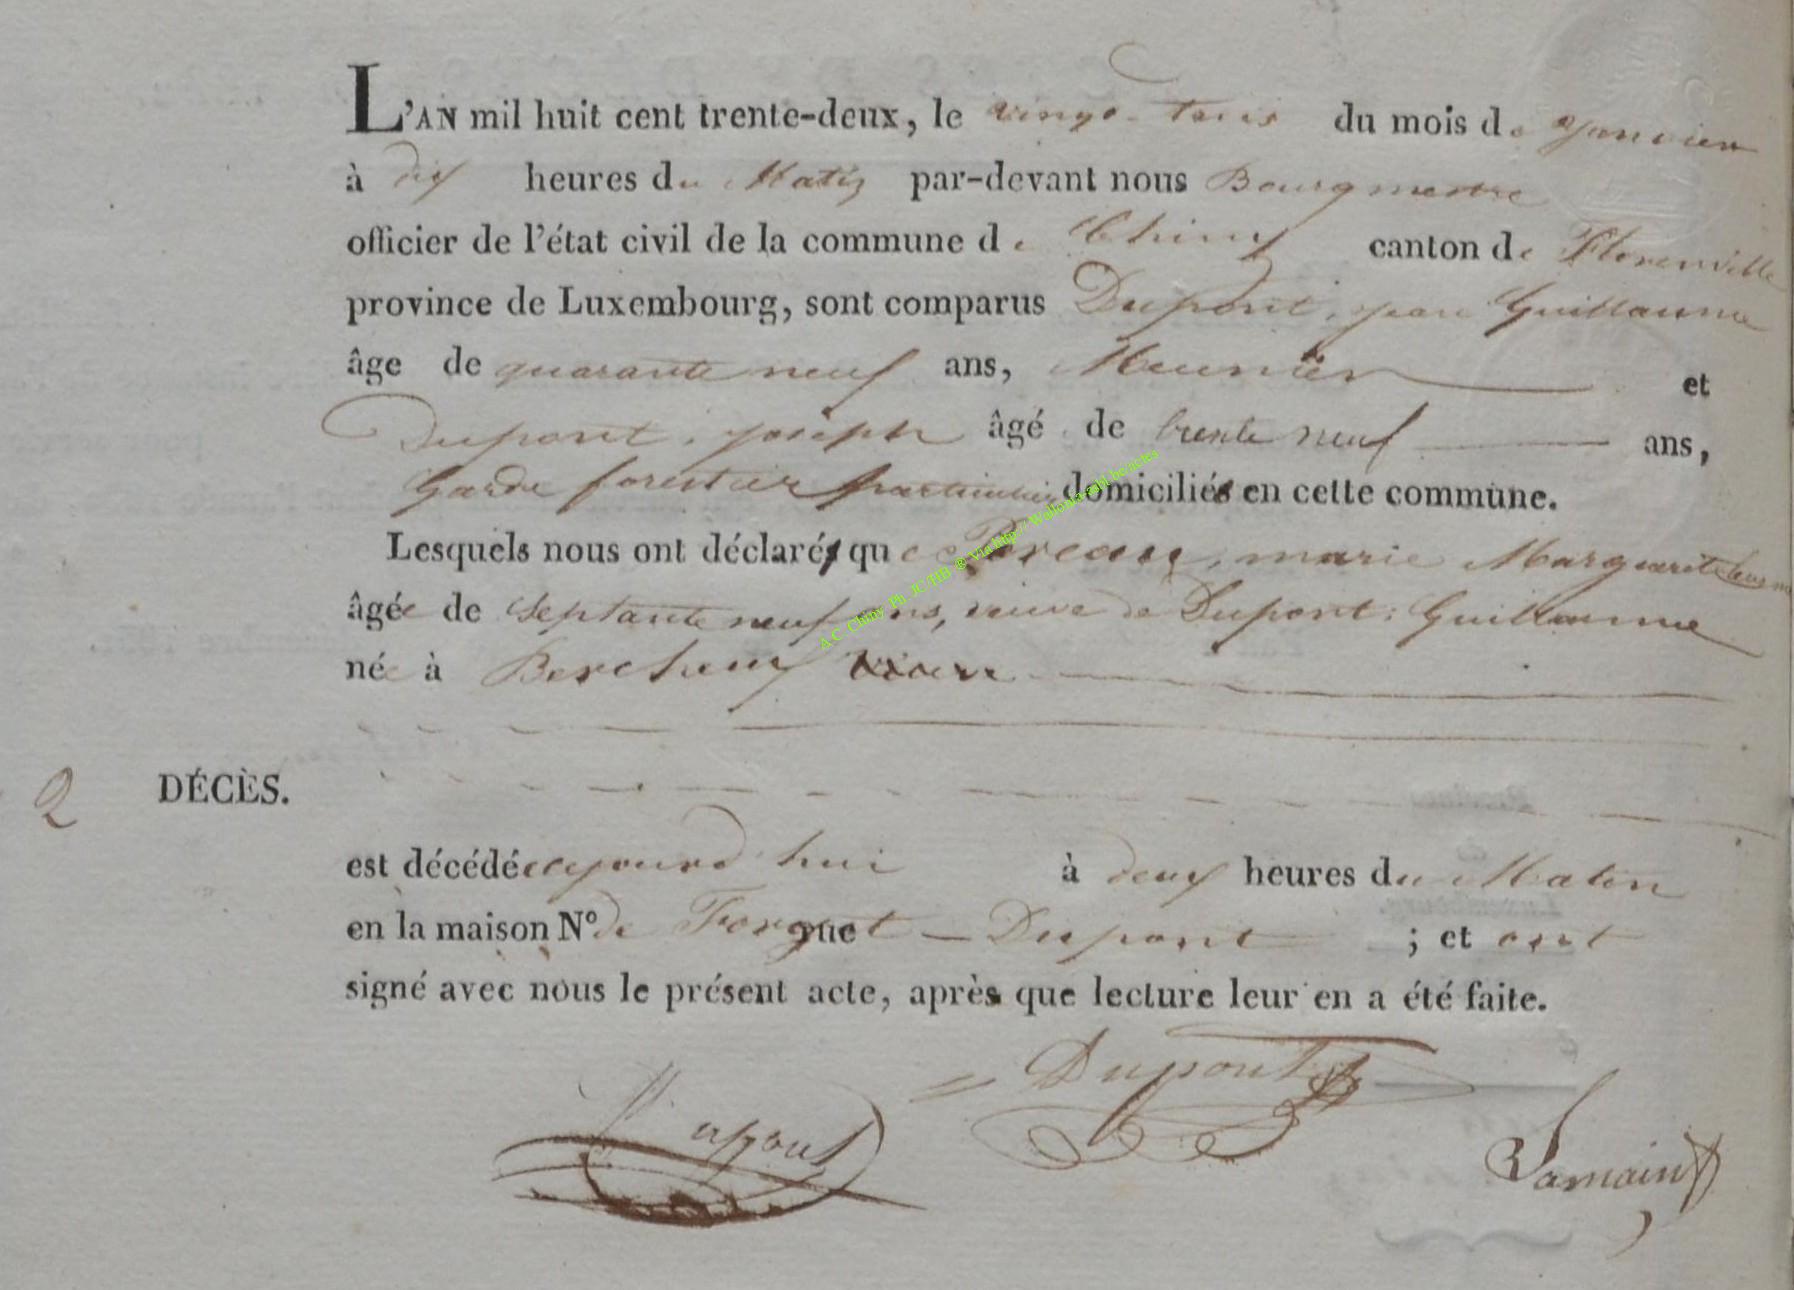 L'AN mil huit cent trente-deux, le vingt-trois du mois de janvier
à dix heures du Matin par-devant nous Bourgmestre
officier de l'état civil de la commune de Chiny canton de Florenville
province de Luxembourg, sont comparus Dupont, jean Guillaume
âge de quarante neuf ans, Meunier et
Dupont, joseph âgé de trente neuf ans,
Garde forestier particulier domiciliés en cette commune.
Lesquels nous ont déclaré qu marie Marguerite
âgée de Septante neuf ans, veuve de Dupont: Guillaume
née à
2 DÉCÈS.
est décédée aujourd'hui à deux heures du Matin
en la maison N° de Forget - Dupont ; et ont
signé avec nous le présent acte, après que lecture leur en a été faite.
Dupont
Dupont
Lamain
A.C. Chiny Ph. JC/HB @ Via http://Wallonia-asbl.be/actes